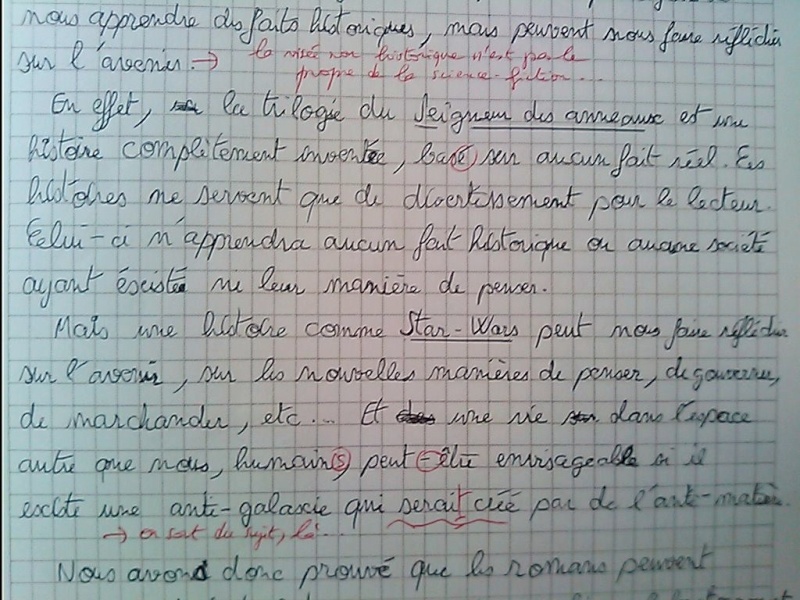 nous apprendre des faits historiques, mais peuvent nous faire réfléchir
sur l'avenir. → la visée non historique n'est pas le
propre de la science-fiction...
En effet, la trilogie du Seigneur des anneaux est une
histoire complètement inventée, basé sur aucun fait réel. Ces
histoires ne servent que de divertissement pour le lecteur.
Celui-ci n'apprendra aucun fait historique ou aucune société
ayant éxisté ni leur manière de penser.
Mais une histoire comme Star-Wars peut nous faire réfléchir
sur l'avenir, sur les nouvelles manières de penser, de gouverner,
de marchander, etc... Et une vie dans l'espace
autre que nous, humain(s) peut-être envisageable si il
existe une anti-galaxie qui serait créé par de l'anti-matière.
→ on sort du sujet, là...
Nous avons donc prouvé que les romans peuvent